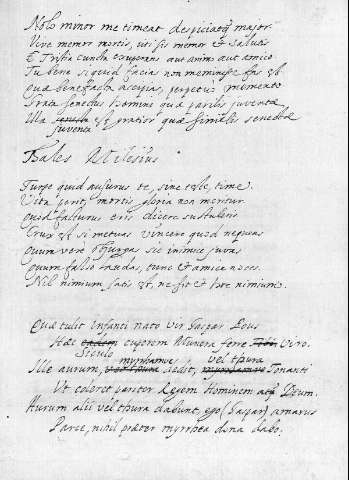 Nolo minor me timeat despiciatq maior.
Vive memor mortis, uti sis memor et salutis
Tristia cuncta exuperans aut animo aut amico
Tu bene si quid facias non meminisse fas est.
Quæ benefacta accipias, perpetuo memento
Grata senectus homini quæ parilis juventæ
Illa senecta est gratior quæ similis senectæ
juventa
Thales Milesius
Turpe quid ausurus te, sine teste, time.
Vita perit, mortis gloria non moritur
Quod facturus eris dicere sustuleris
Crux est si metuas vincere quod nequeas
Quum vere objurgas sic inimice juvas
Quum falso laudas, tunc et amice noces.
Nil nimium satis est, ne sit et hoc nimium.
Quæ tulit Infanti nato vir Gaspar Deus
Hæc eadem cuperem Munera ferre Tibi viro.
Siculo myrrhamve vel thura
Ille aurum, dedit, Tonanti
Ut coleret pariter Regem Hominem atq Deum.
Aurum alii vel thura dabunt, ego (Gaspar) amarus
Parce, nihil præter myrrhea dona dabo.